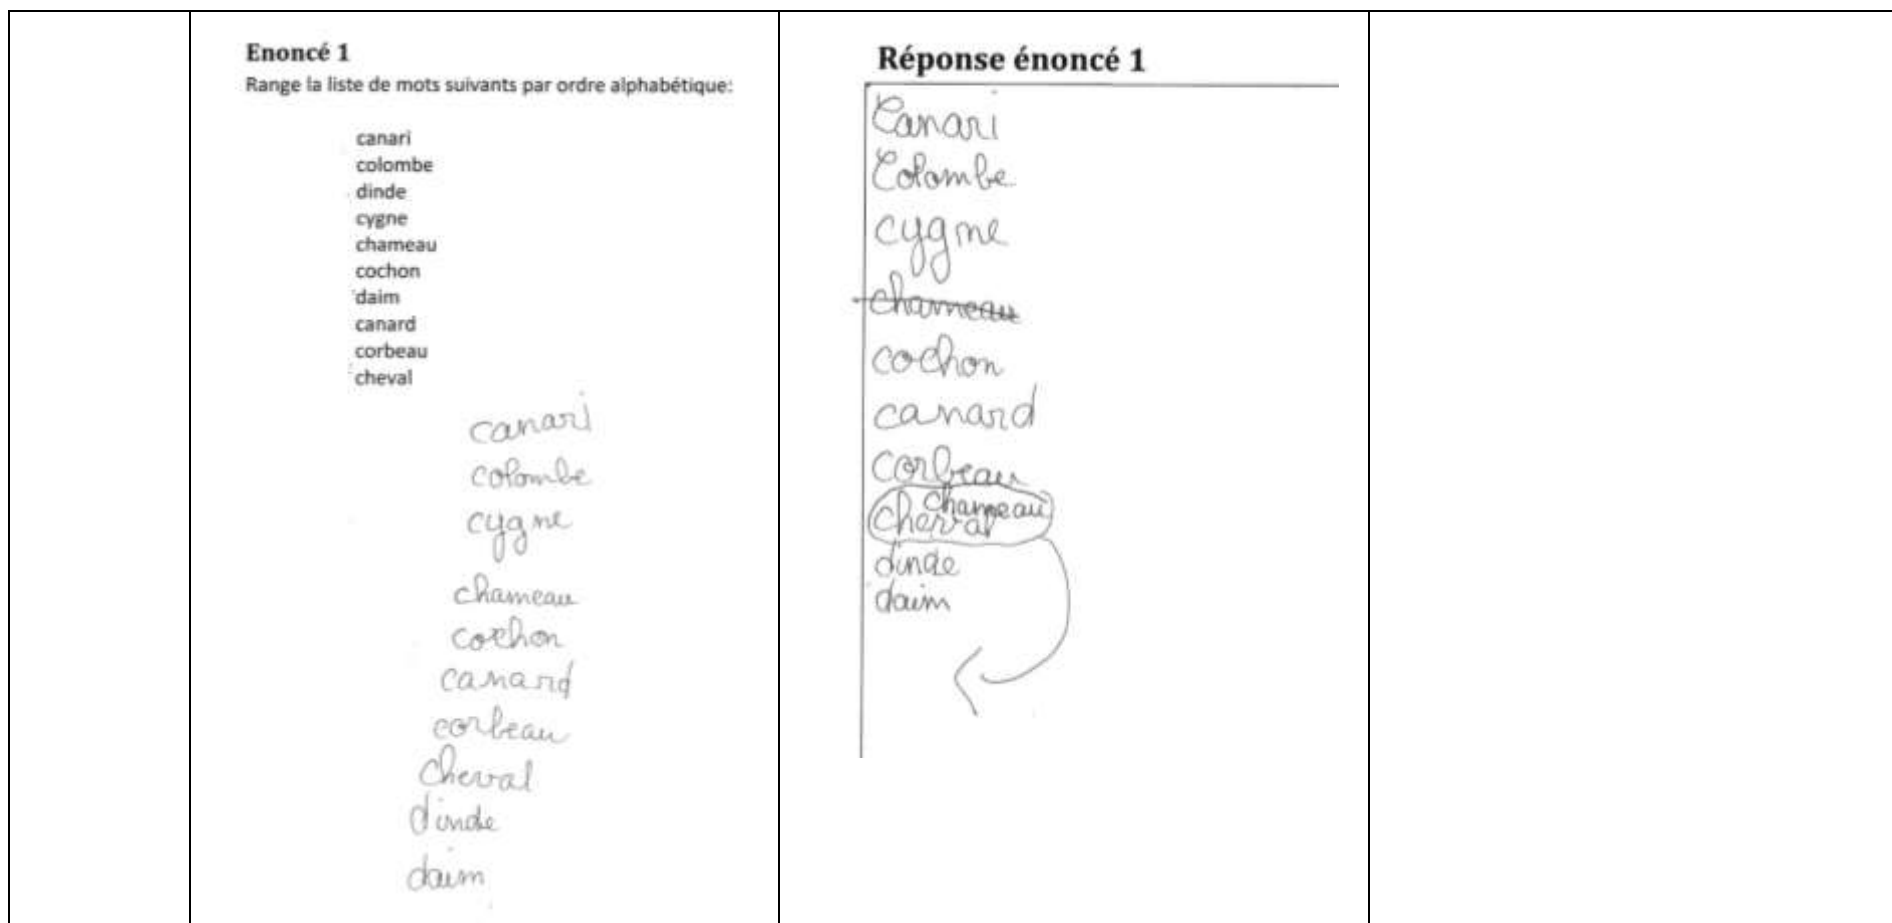 Enoncé 1
Range la liste de mots suivants par ordre alphabétique:
canari
colombe
dinde
cygne
chameau
cochon
daim
canard
corbeau
cheval
canari
colombe
cygne
chameau
cochon
canard
corbeau
cheval
dinde
daim
Réponse énoncé 1
Canari
Colombe
cygne
chameau
cochon
canard
corbeau
chameau
cheval
dinde
daim